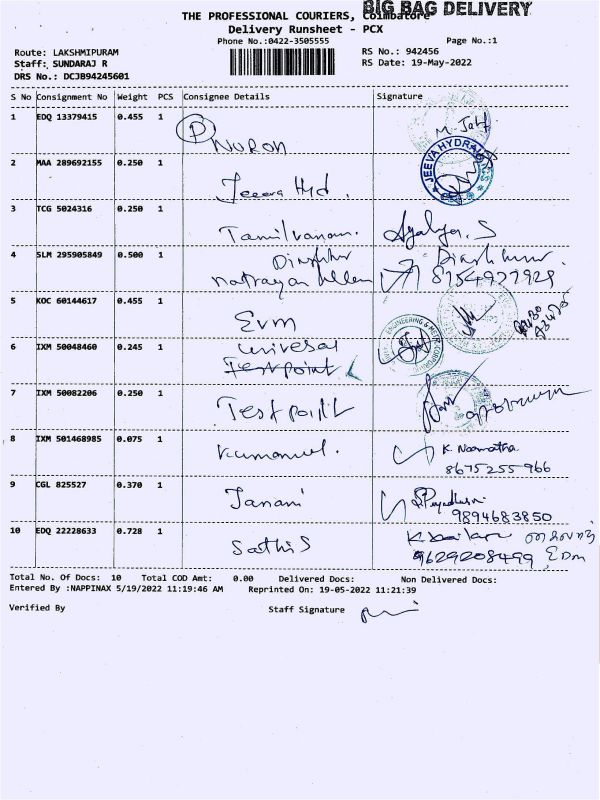 BIG BAG DELIVERY
THE PROFESSIONAL COURIERS, Coimbatore
Delivery Runsheet - PCX
Phone No.:0422-3505555
Page No.:1
Route: LAKSHMIPURAM
RS No.: 942456
Staff: SUNDARAJ R
RS Date: 19-May-2022
DRS No.: DCJB94245601
S No Consignment No Weight PCS Consignee Details Signature
1 EDQ 13379415 0.455 1
P
NURON
M. Jaff
2 MAA 289692155 0.250 1
JEEVA HYDRAULICS
Jeeva Hyd.
3 TCG 5024316 0.250 1
Tamilvanan.
4 SLM 295905849 0.500 1
natrayan
8754977929
5 KOC 60144617 0.455 1
Evm
6 IXM 50048460 0.245 1
universal
ENGINEERING &
Testpoint
7 IXM 50082206 0.250 1
Testpoint
8 IXM 501468985 0.075 1
Kumaravel.
K. Naamatha
8675255966
9 CGL 825527 0.370 1
Janani
9894683850
10 EDQ 22228633 0.728 1
SathiS
9629208499
Total No. Of Docs: 10 Total COD Amt: 0.00 Delivered Docs: Non Delivered Docs:
Entered By :NAPPINAX 5/19/2022 11:19:46 AM Reprinted On: 19-05-2022 11:21:39
Verified By Staff Signature